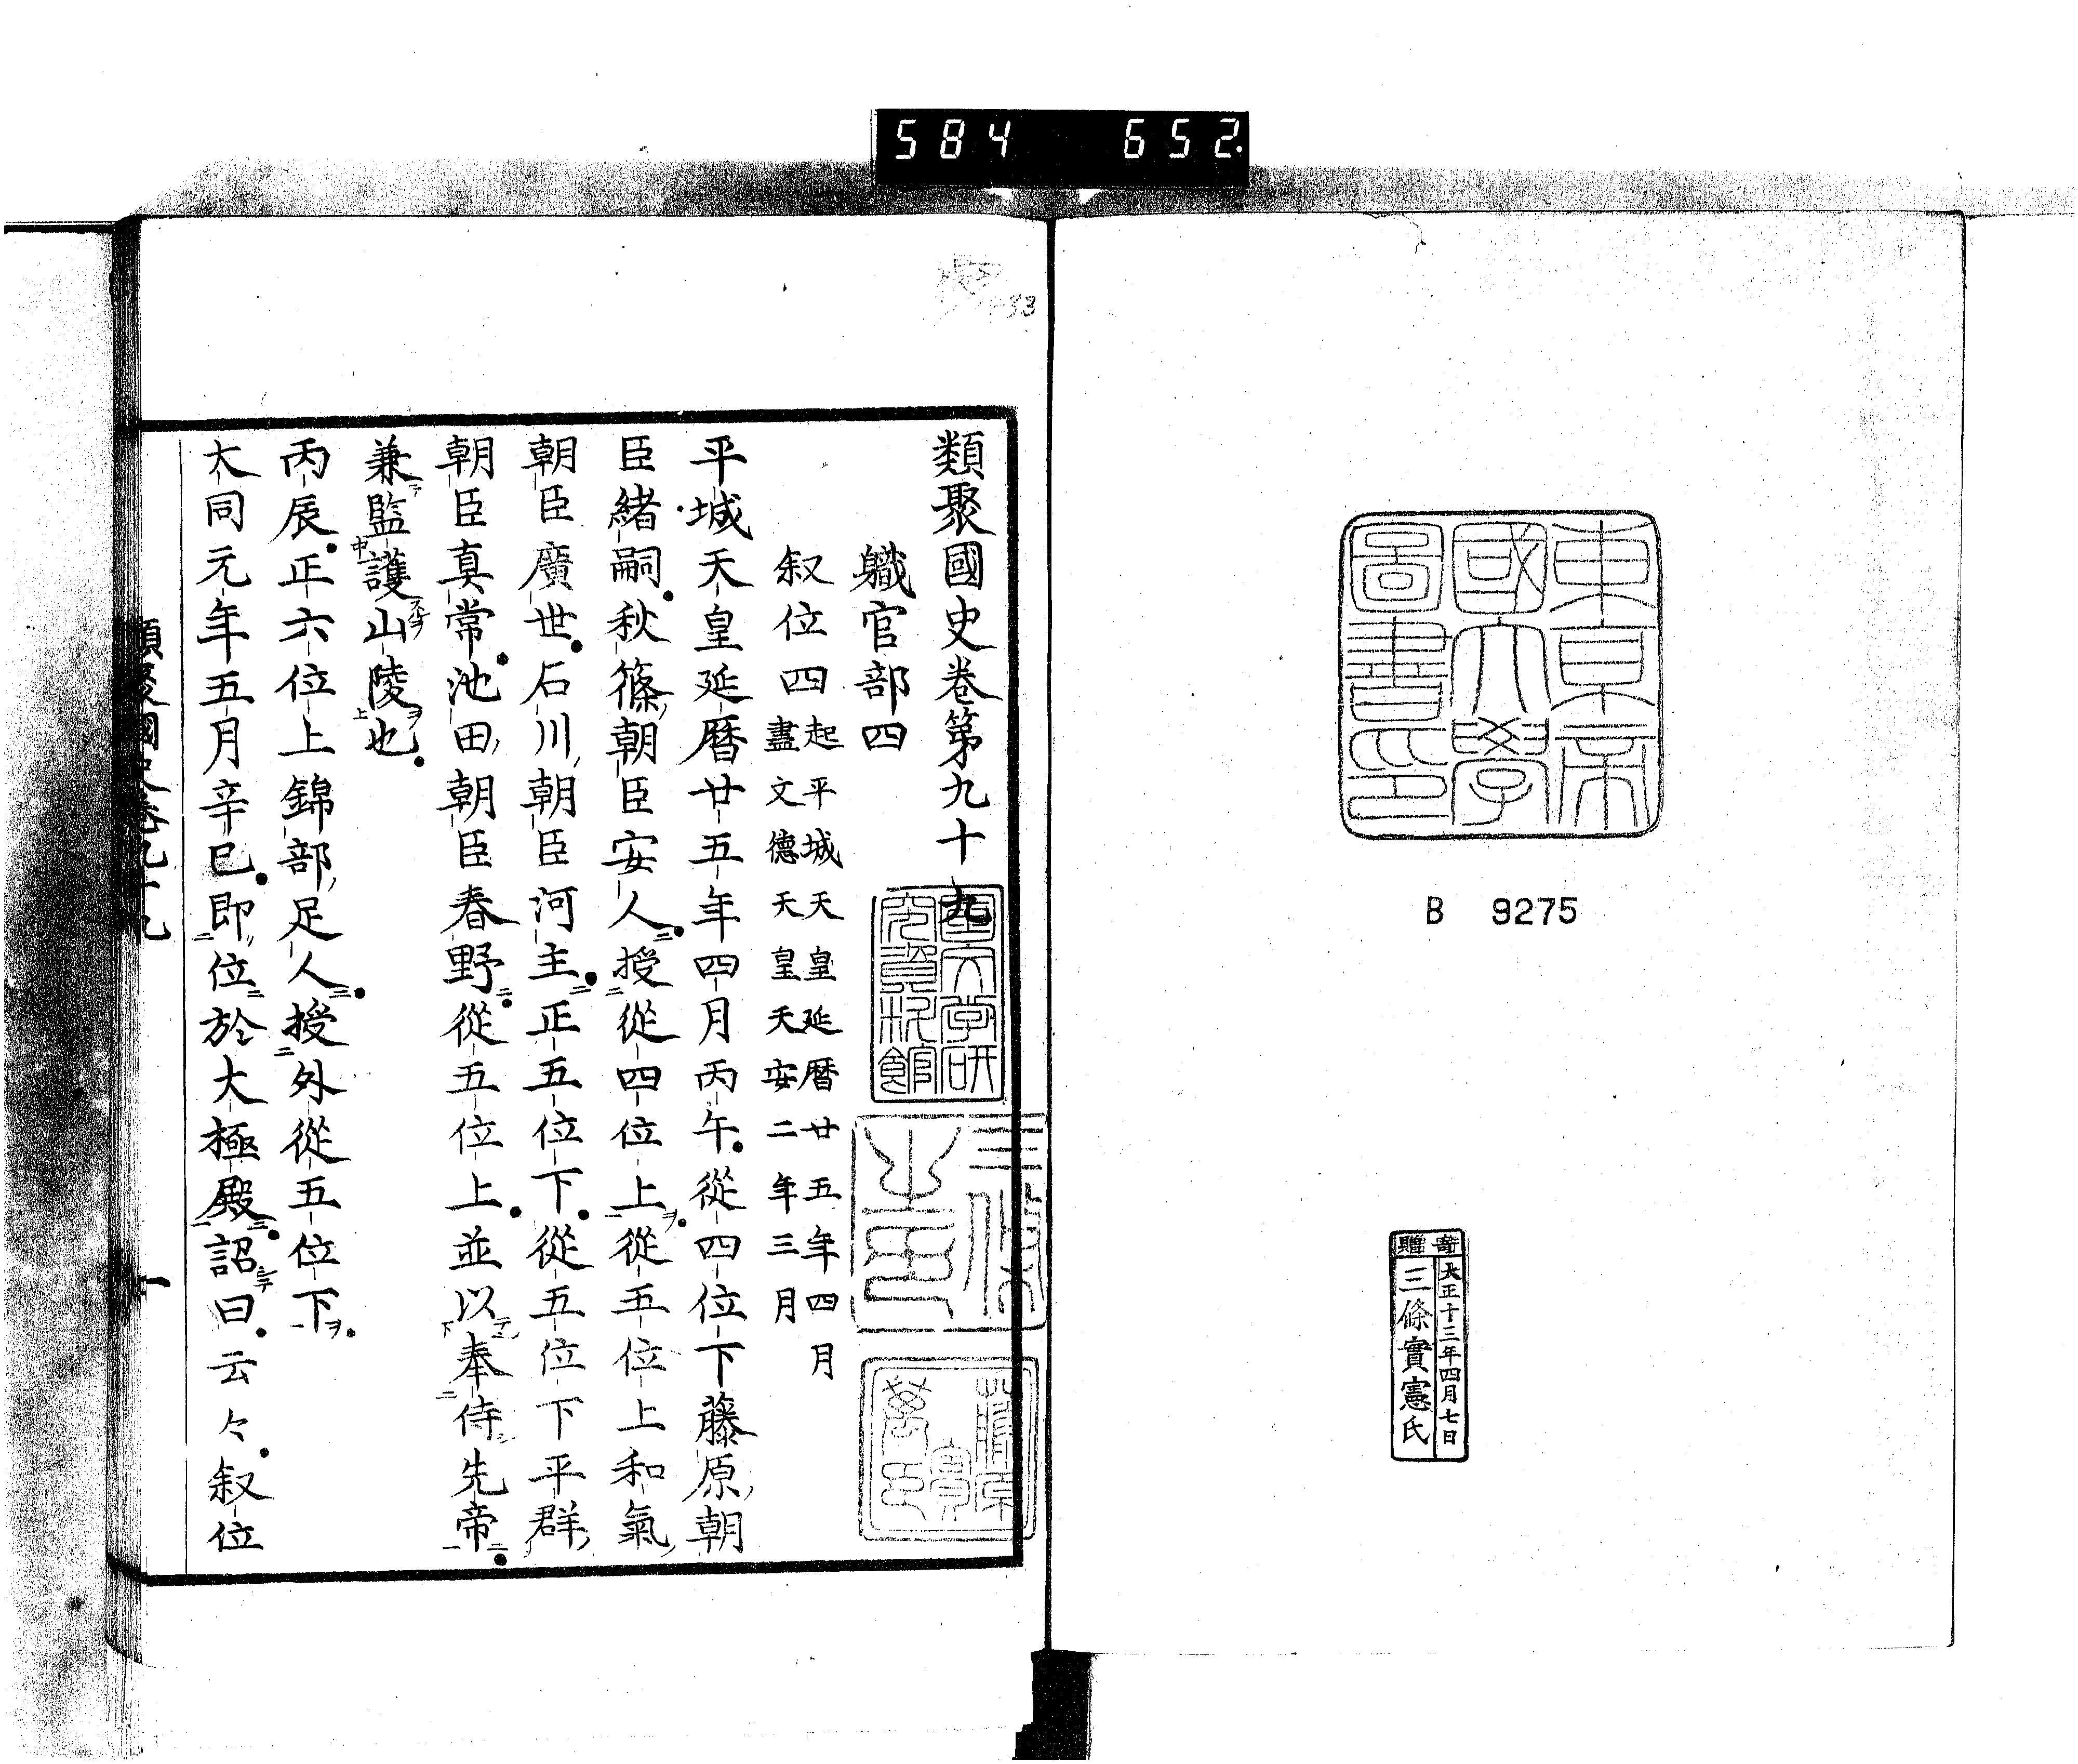 584 652
東京帝
國大學
圖書印
B 9275
寄贈
大正十三年四月七日
三條實憲氏
33
類聚國史卷第九十九
職官部四
叙位四起平城天皇延暦廿五年四月
盡文德天皇天安二年三月
平城天皇延暦廿五年四月丙午從四位下藤原朝
臣緒嗣秋篠朝臣安人授從四位上從五位上和氣
朝臣廣世石川朝臣河主正五位下從五位下平群
朝臣真常池田朝臣春野從五位上並以奉侍先帝
兼監護山陵也
丙辰正六位上錦部足人授外從五位下
大同元年五月辛巳即位於大極殿詔曰云々叙位
國文学研
究資料館
藤原
實
萬印
類聚國史卷九十九
一